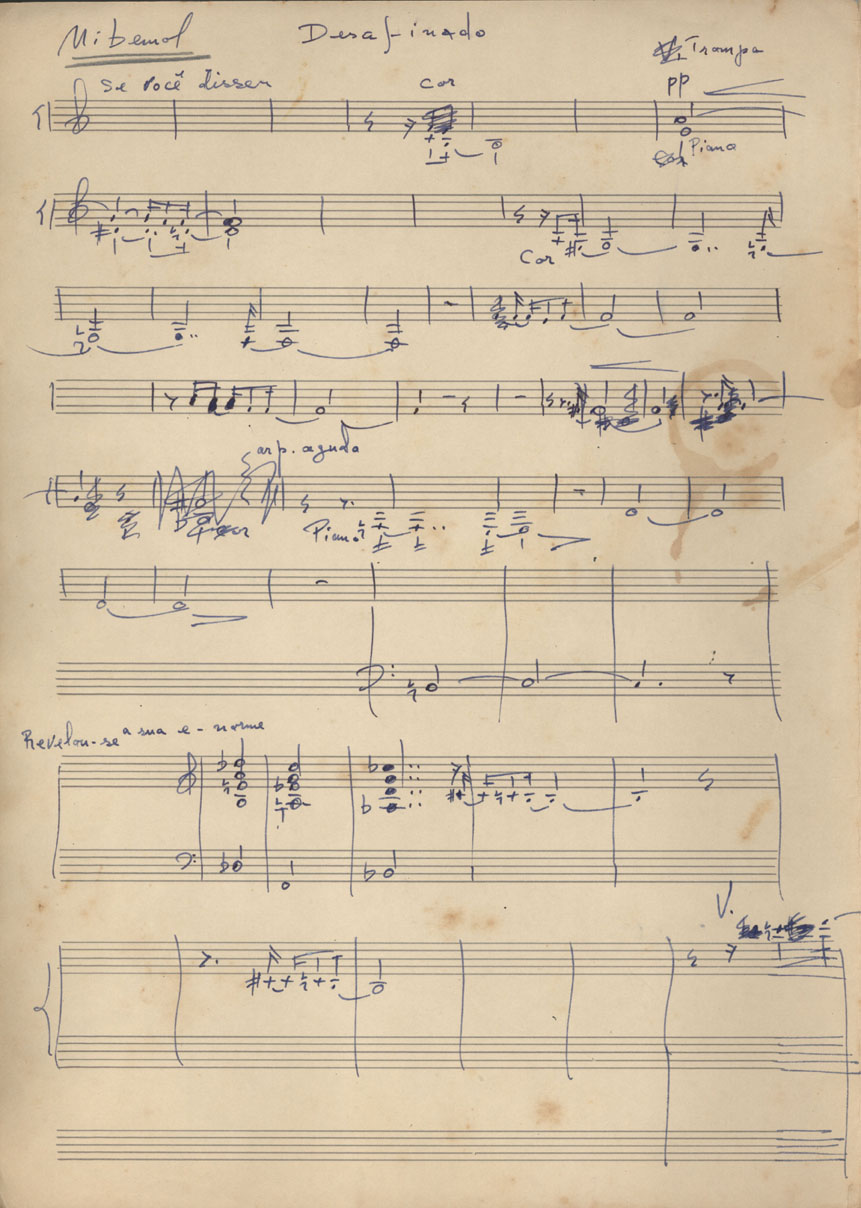 Mi bemol Desafinado
Trompa
Se você disser Cor pp
Piano
Cor
arp. aguda
Piano
Revelou-se a sua e-norme
V.